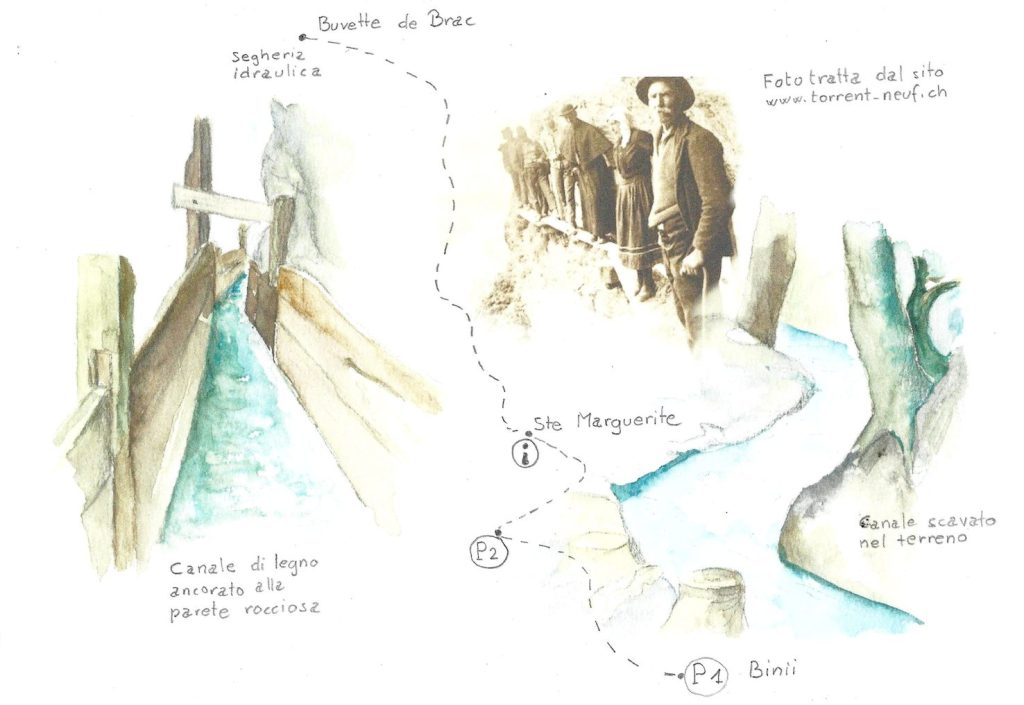 Buvette de Brac
Segheria
idraulica
Foto tratta dal sito
www.torrent-neuf.ch
Ste Marguerite
i
P2
Canale scavato
nel terreno
Canale di legno
ancorato alla
parete rocciosa
P1 Binii